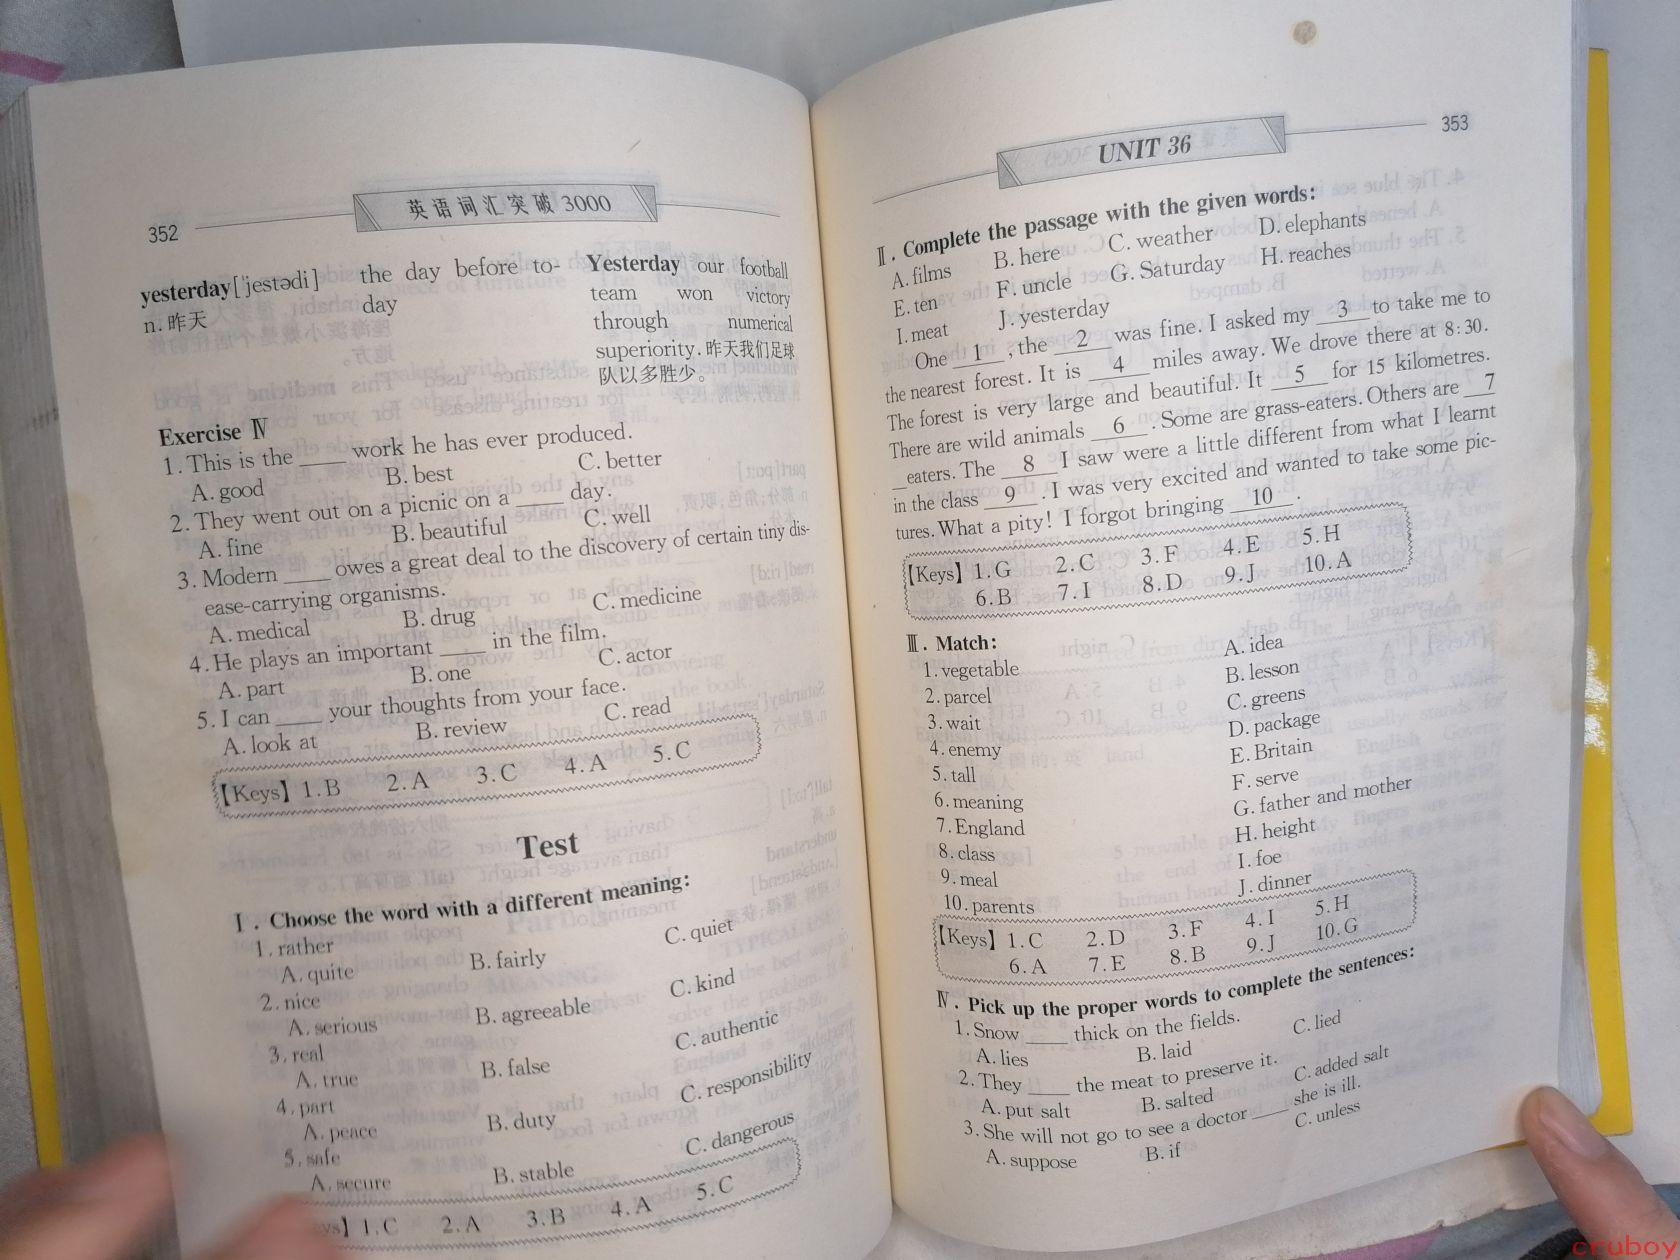 352
英语词汇突破 3000
yesterday['jestədi]
n.昨天
the day before to-
day
Yesterday our football
team won victory
through numerical
superiority.昨天我们足球
队以多胜少。
Exercise Ⅳ
1.This is the ____ work he has ever produced.
A.good B.best C.better
2.They went out on a picnic on a ____ day.
A.fine B.beautiful C.well
3.Modern ____ owes a great deal to the discovery of certain tiny dis-
ease-carrying organisms.
A.medical B.drug C.medicine
4.He plays an important ____ in the film.
A.part B.one C.actor
5.I can ____ your thoughts from your face.
A.look at B.review C.read
【Keys】 1.B 2.A 3.C 4.A 5.C
Test
Ⅰ. Choose the word with a different meaning:
1.rather
A.quite B.fairly C.quiet
2.nice
A.serious B.agreeable C.kind
3.real
A.true B.false C.authentic
4.part
A.peace B.duty C.responsibility
5.safe
A.secure B.stable C.dangerous
1.C 2.A 3.B 4.A 5.C
UNIT 36
353
Ⅱ. Complete the passage with the given words:
A.films B.here C.weather D.elephants
E.ten F.uncle G.Saturday H.reaches
I.meat J.yesterday
One __1__, the __2__ was fine. I asked my __3__ to take me to
the nearest forest. It is __4__ miles away. We drove there at 8:30.
The forest is very large and beautiful. It __5__ for 15 kilometres.
There are wild animals __6__. Some are grass-eaters. Others are __7
_eaters. The __8__ I saw were a little different from what I learnt
in the class __9__. I was very excited and wanted to take some pic-
tures. What a pity! I forgot bringing __10__.
【Keys】 1.G 2.C 3.F 4.E 5.H
6.B 7.I 8.D 9.J 10.A
Ⅲ. Match:
1.vegetable A.idea
2.parcel B.lesson
3.wait C.greens
4.enemy D.package
5.tall E.Britain
6.meaning F.serve
7.England G.father and mother
8.class H.height
9.meal I.foe
10.parents J.dinner
【Keys】 1.C 2.D 3.F 4.I 5.H
6.A 7.E 8.B 9.J 10.G
Ⅳ. Pick up the proper words to complete the sentences:
1.Snow ____ thick on the fields.
A.lies B.laid C.lied
2.They ____ the meat to preserve it.
A.put salt B.salted C.added salt
3.She will not go to see a doctor ____ she is ill.
A.suppose B.if C.unless
cruboy